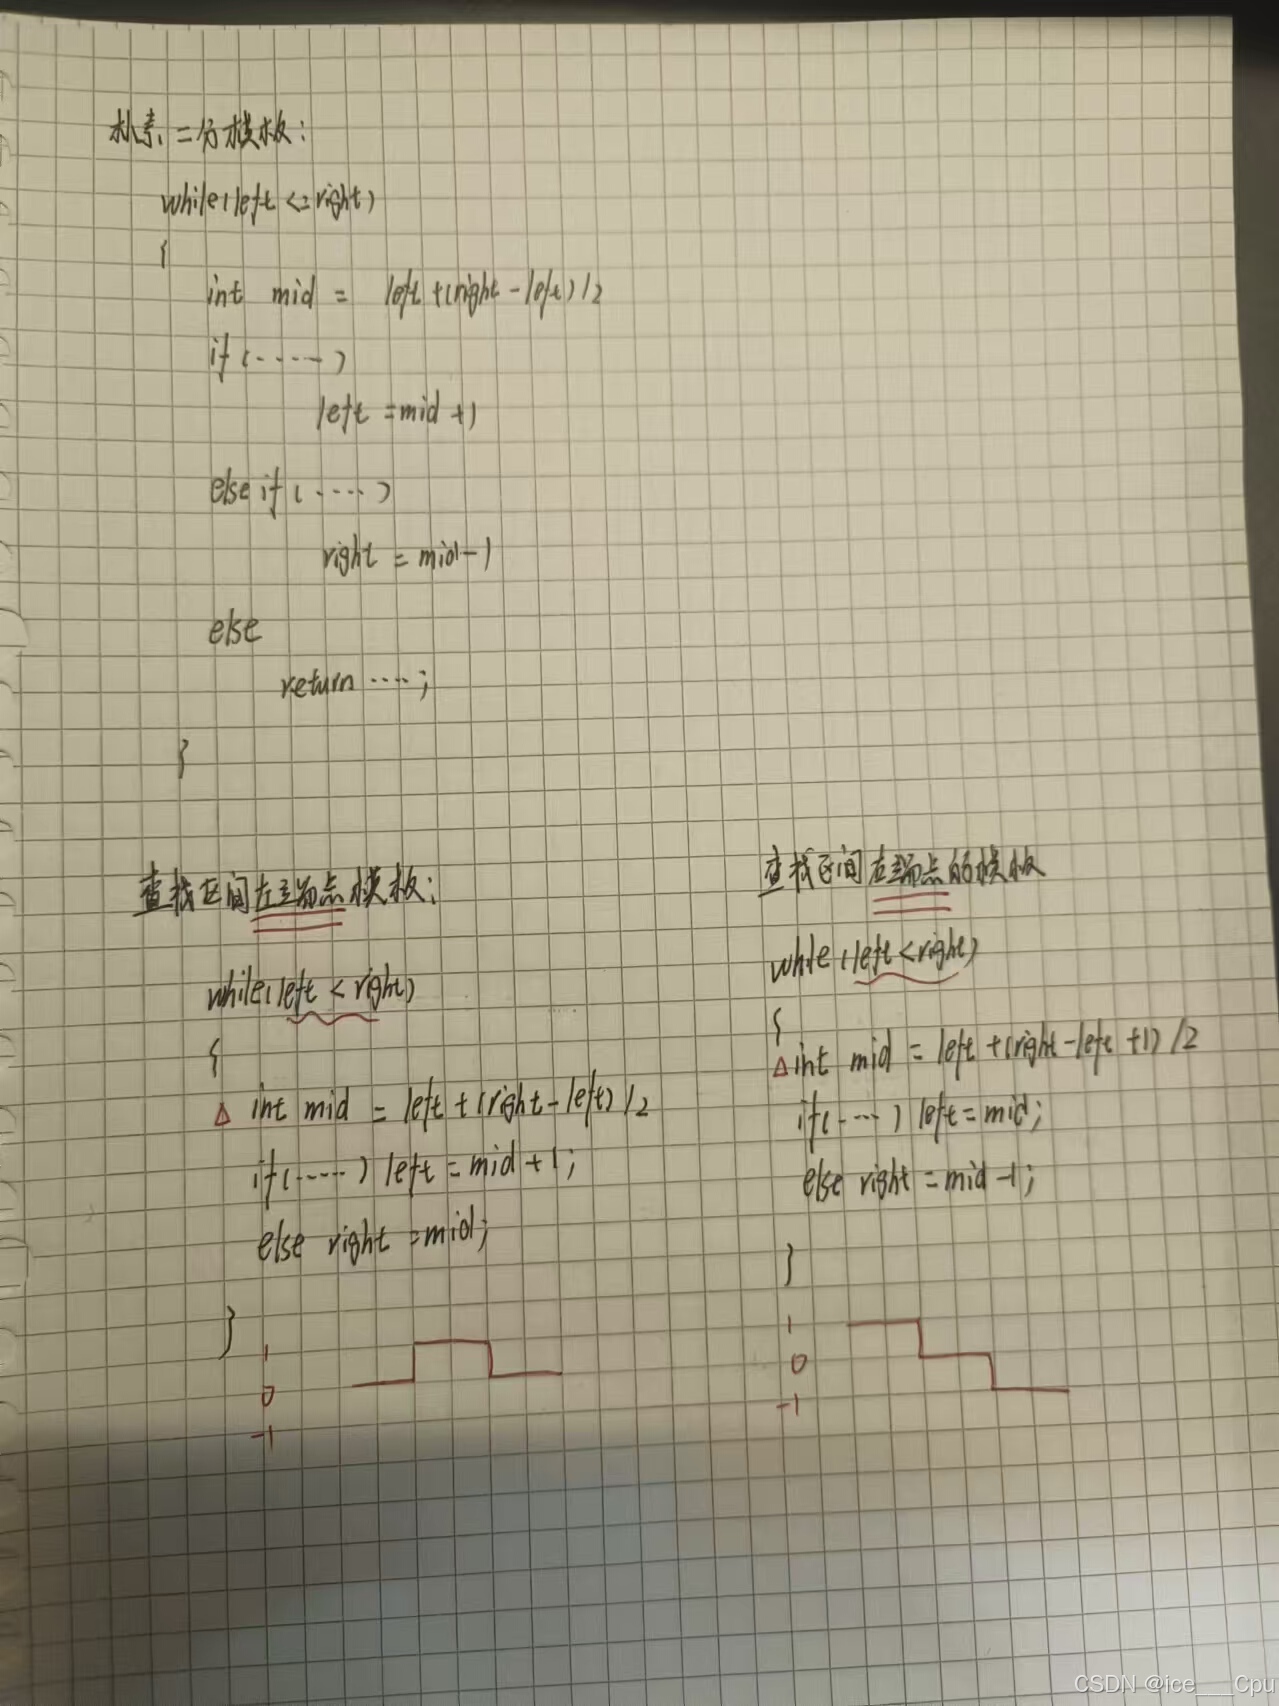 朴素二分模板:
while(left <= right)
{
int mid = left +(right - left) /2
if (·····)
left = mid +1
else if (·····)
right = mid-1
else
return ····;
}
查找区间左端点模板:
while(left < right)
{
△ int mid = left +(right-left) /2
if(·····) left = mid +1;
else right = mid;
}
1
0
-1
查找区间右端点的模板
while (left < right)
{
△ int mid = left +(right-left +1) /2
if(····) left = mid;
else right = mid -1;
}
1
0
-1
CSDN @ice___Cpu